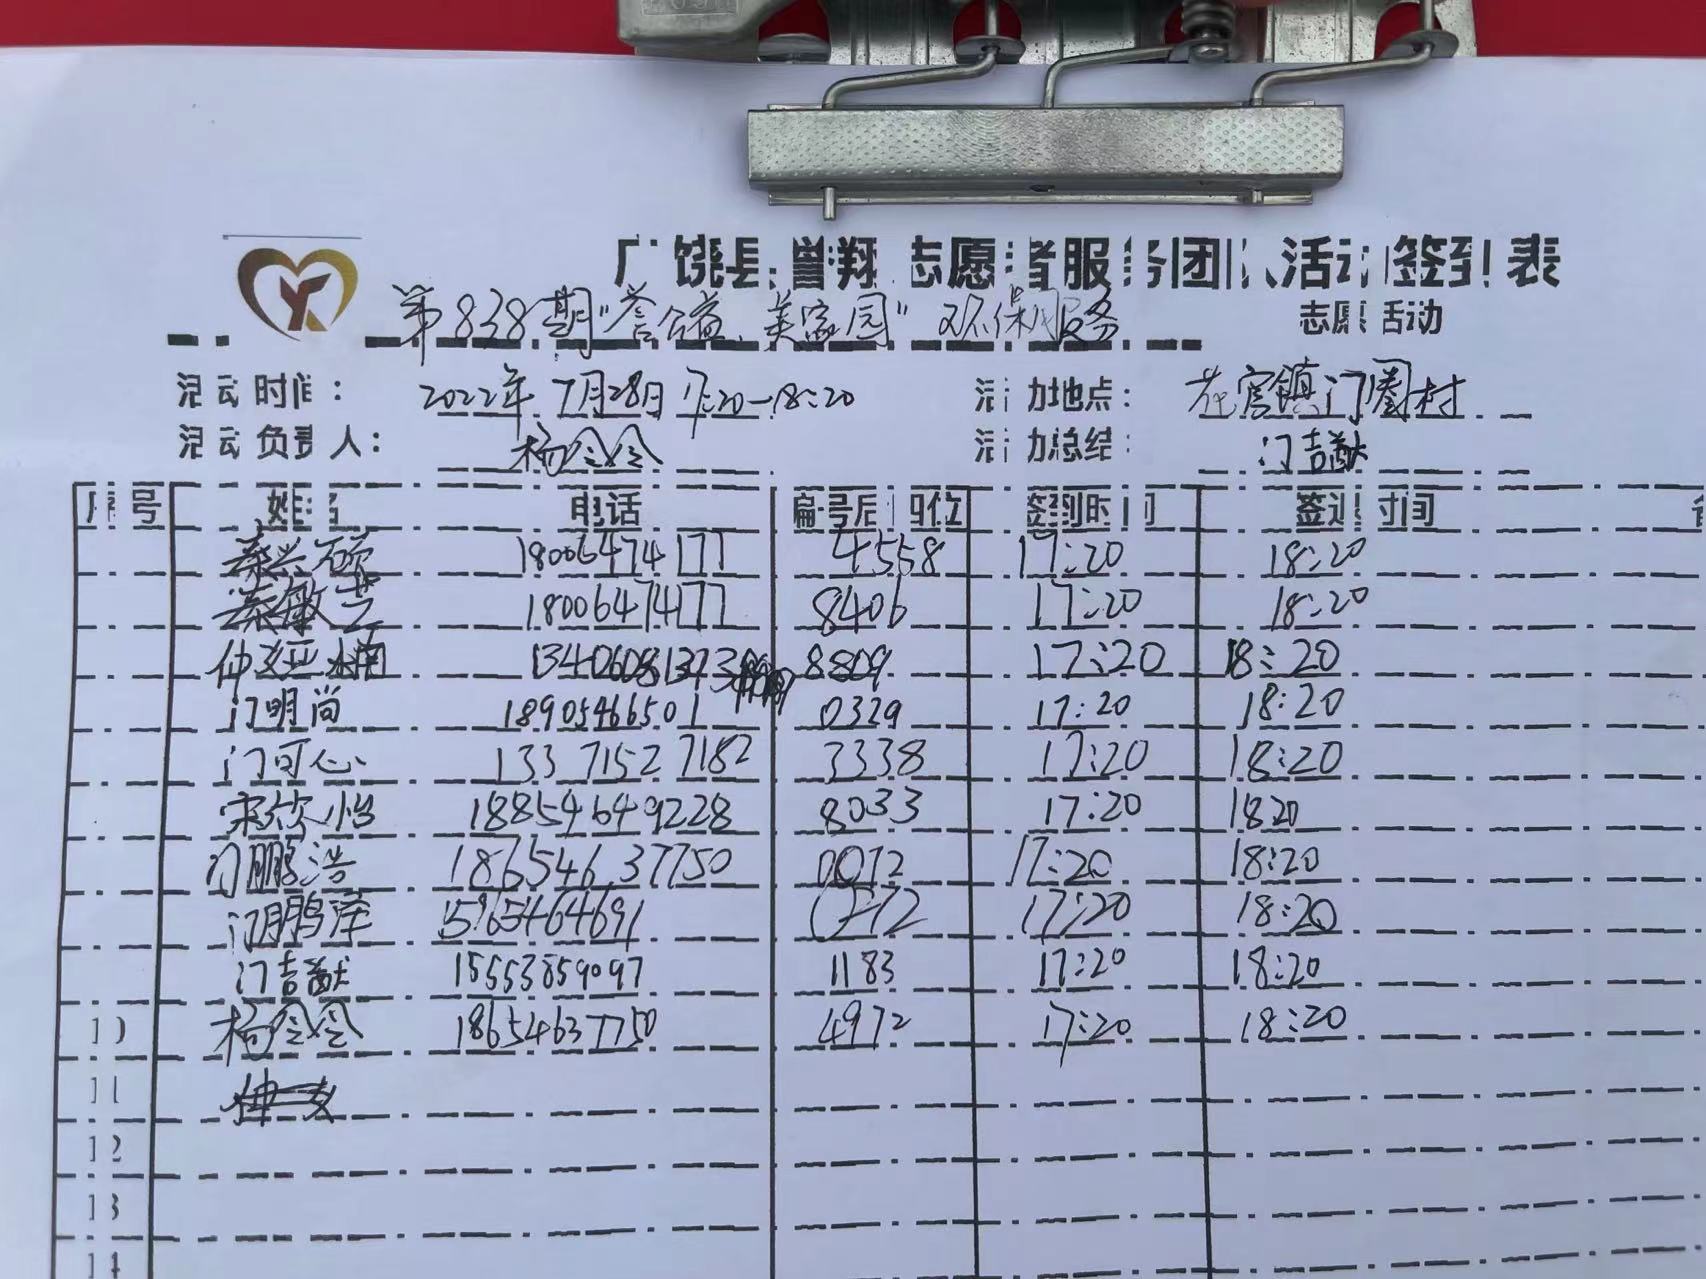 广饶县誉翔志愿者服务团队活动签到表
第838期"誉公益、美家园"环保服务 志愿活动
活动时间: 2022年7月28日17:20—18:20 活动地点: 花官镇门圈村
活动负责人: 杨令令 活动总结: 门吉猷
序号 姓名 电话 编号后四位 签到时间 签退时间 备
18006474177 4558 17:20 18:20
18006474177 8406 17:20 18:20
仲亚楠 13406081373 8809 17:20 18:20
门明尚 18905466501 0329 17:20 18:20
门可心 13371527182 3338 17:20 18:20
宋欣怡 18854649228 8033 17:20 1820
门鹏浩 18654637750 0072 17:20 18:20
门鹏泽 15965464691 17:20 18:20
门吉猷 15553859097 1183 17:20 18:20
10 杨令令 18654637750 4972 17:20 18:20
11
12
13
14